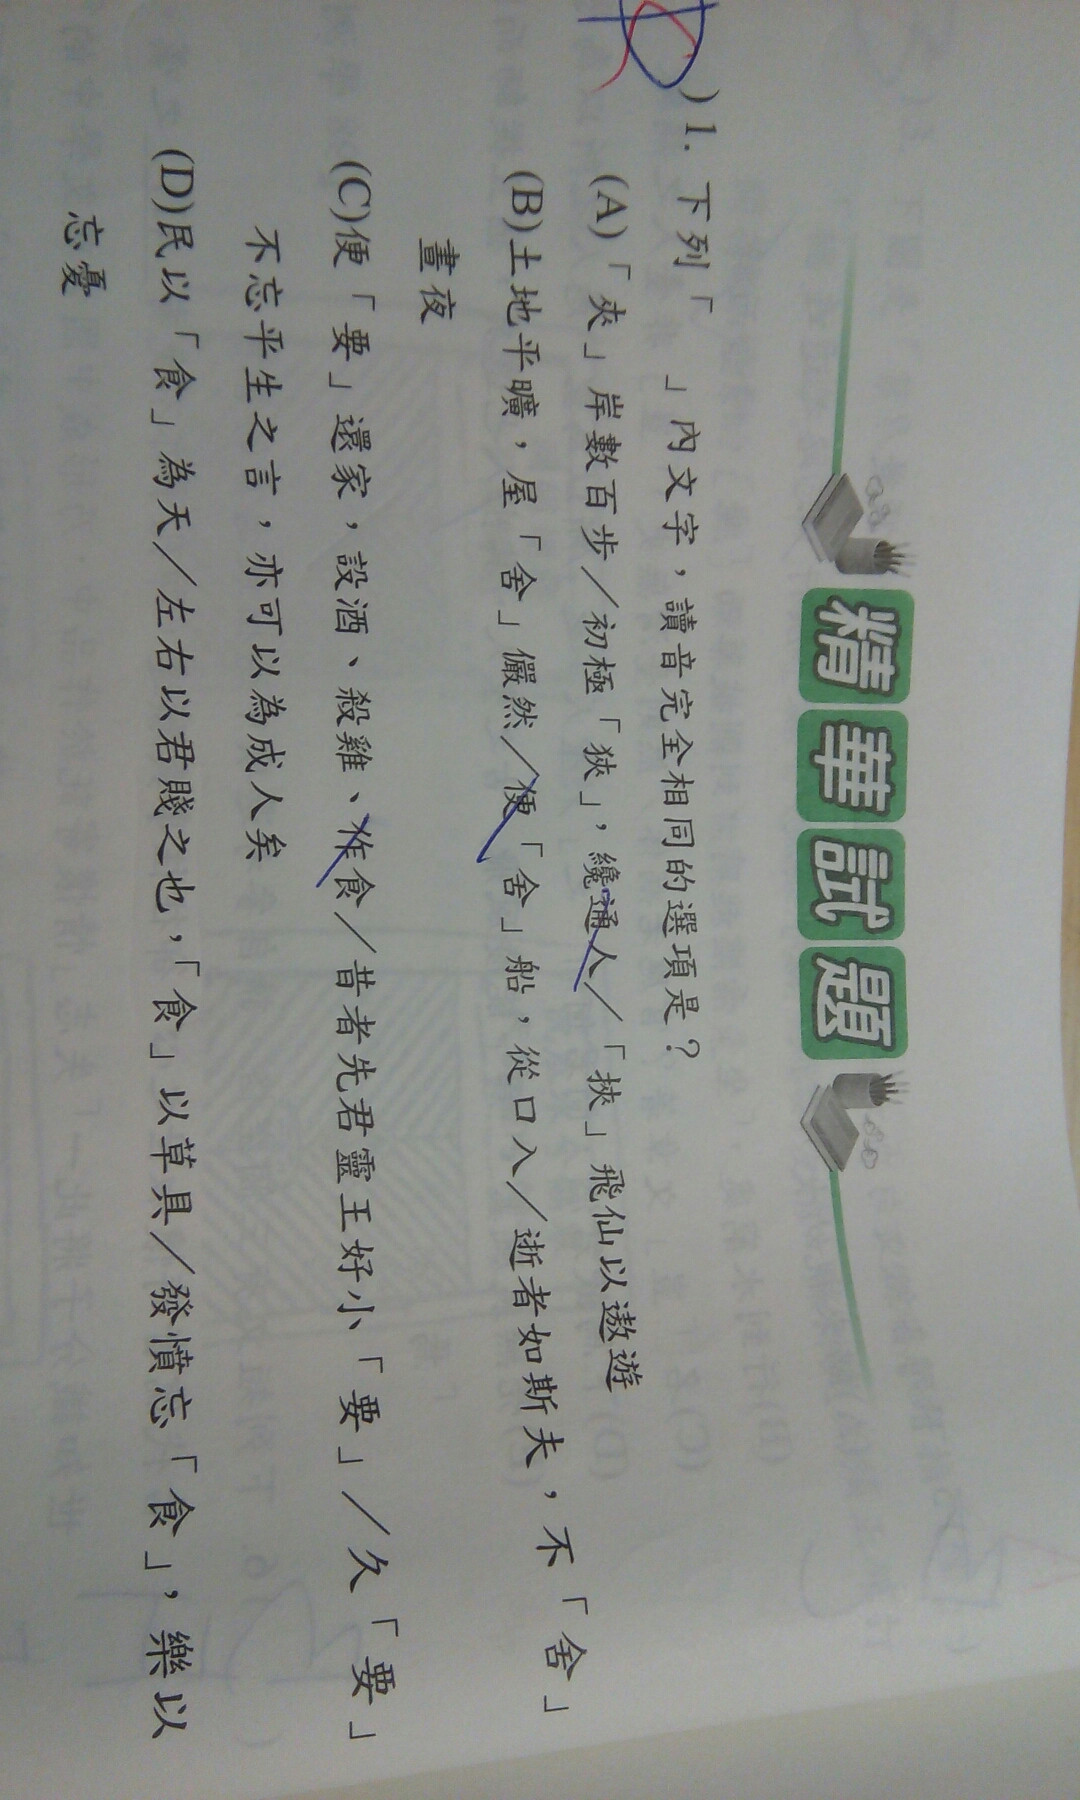 精華試題
)1. 下列「 」內文字，讀音完全相同的選項是？
(A)「夾」岸數百步／初極「狹」，纔通人／「挾」飛仙以遨遊
(B)土地平曠，屋「舍」儼然／便「舍」船，從口入／逝者如斯夫，不「舍」
晝夜
(C)便「要」還家，設酒、殺雞、作食／昔者先君靈王好小「要」／久「要」
不忘平生之言，亦可以為成人矣
(D)民以「食」為天／左右以君賤之也，「食」以草具／發憤忘「食」，樂以
忘憂